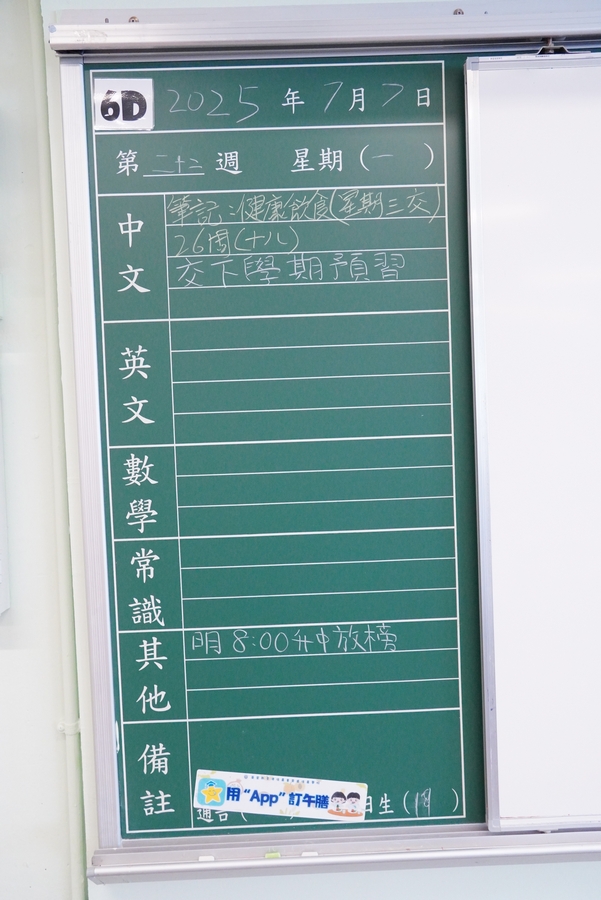 6D 2025 年 7 月 7 日
第 二十二 週 星期 (一)
中文
筆記:健康飲食(星期三交)
26周(十八)
交下學期預習
英文
數學
常識
其他
明8:00升中放榜
備註
用“App”訂午膳